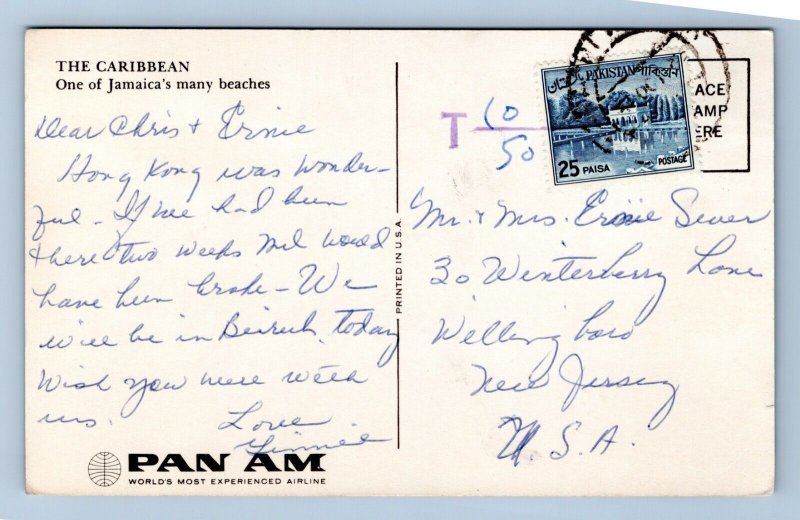 THE CARIBBEAN
One of Jamaica's many beaches
Dear Chris & Ernie
Hong Kong was wonder-
ful - If we had been
there two weeks Mel would
have been broke - We
will be in Beirut, today
Wish you were with
us.
Love
PAN AM
WORLD'S MOST EXPERIENCED AIRLINE
PRINTED IN U.S.A.
T 10
50
PAKISTAN
25 PAISA
POSTAGE
ACE
AMP
ERE
Mr. & Mrs. Ernie Sever
30 Winterberry Lane
Willingboro
New Jersey
U.S.A.